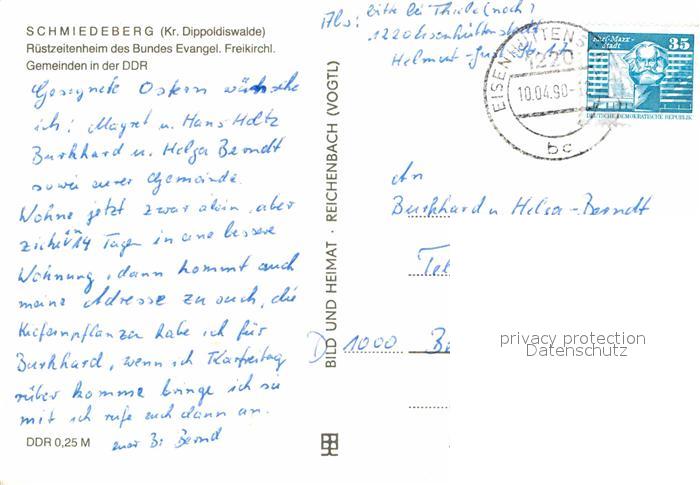 SCHMIEDEBERG (Kr. Dippoldiswalde)
Rüstzeitenheim des Bundes Evangel. Freikirchl.
Gemeinden in der DDR
Gesegnete Ostern wünsche
ich: Magret u. Hans Holtz
Burkhard u. Helga Berndt
sowie eurer Gemeinde.
Wohne jetzt zwar allein, aber
ziehe in 14 Tagen in eine bessere
Wohnung, dann kommt auch
meine Adresse zu euch, die
Kiefernpflanzen habe ich für
Burkhard, wenn ich Karfreitag
rüber komme bringe ich sie
mit ich rufe euch dann an.
euer Br. Bernd
DDR 0,25 M
BILD UND HEIMAT · REICHENBACH (VOGTL)
Abs: bitte bei Thiele (noch)
1220 Eisenhüttenstadt
Helmut-Just-
EISENHÜTTENS
1220
10.04.90-1
bc
Karl-Marx-
Stadt
35
DEUTSCHE DEMOKRATISCHE REPUBLIK
An
Burkhard u Helga-Berndt
D 1000
privacy protection
Datenschutz